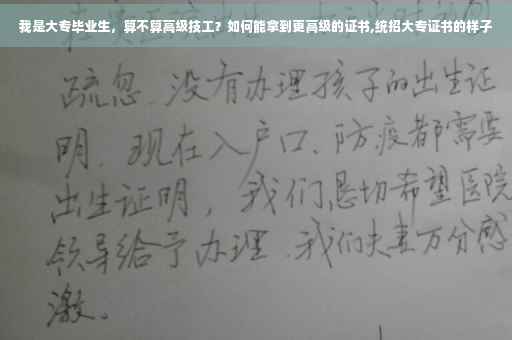 我是大专毕业生，算不算高级技工？如何能拿到更高级的证书,统招大专证书的样子
疏忽、没有办理孩子的出生证
明、现在入户口、防疫都需要
出生证明，我们恳切希望医院
领导给予办理、我们夫妻万分感
激。